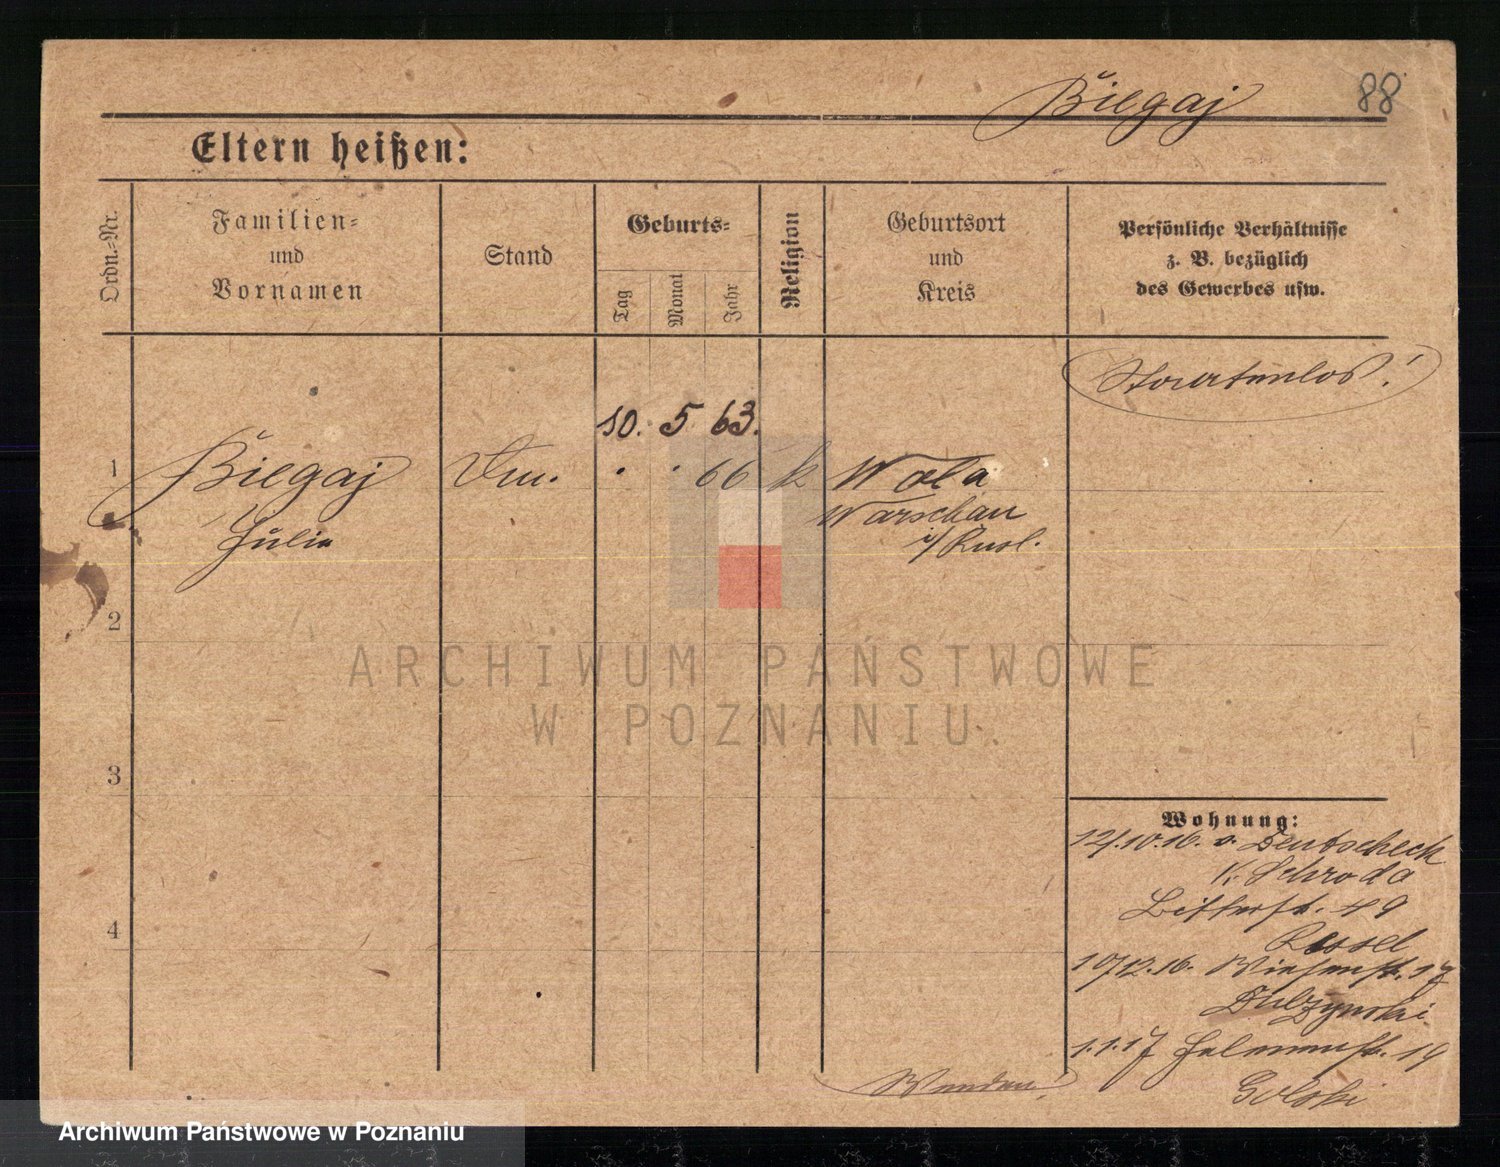 Biegaj 88
Eltern heißen:
Ordn.-Nr.
Familien-
und
Vornamen
Stand
Geburts-
Tag
Monat
Jahr
Religion
Geburtsort
und
Kreis
Persönliche Verhältnisse
z. B. bezüglich
des Gewerbes usw.
10. 5 63.
1 Biegaj . . 66 k Wola
Julia
Warschau
i/Rusl.
2
ARCHIWUM PAŃSTWOWE
W POZNANIU
3
4
Wohnung:
12/10.16. v. Deutscheck
K. Schroda
Bitterst. 49
10/12.16. Wiesenst. 17
Dulzynski
1.1.17
14
Golski
Wenden!
Archiwum Państwowe w Poznaniu